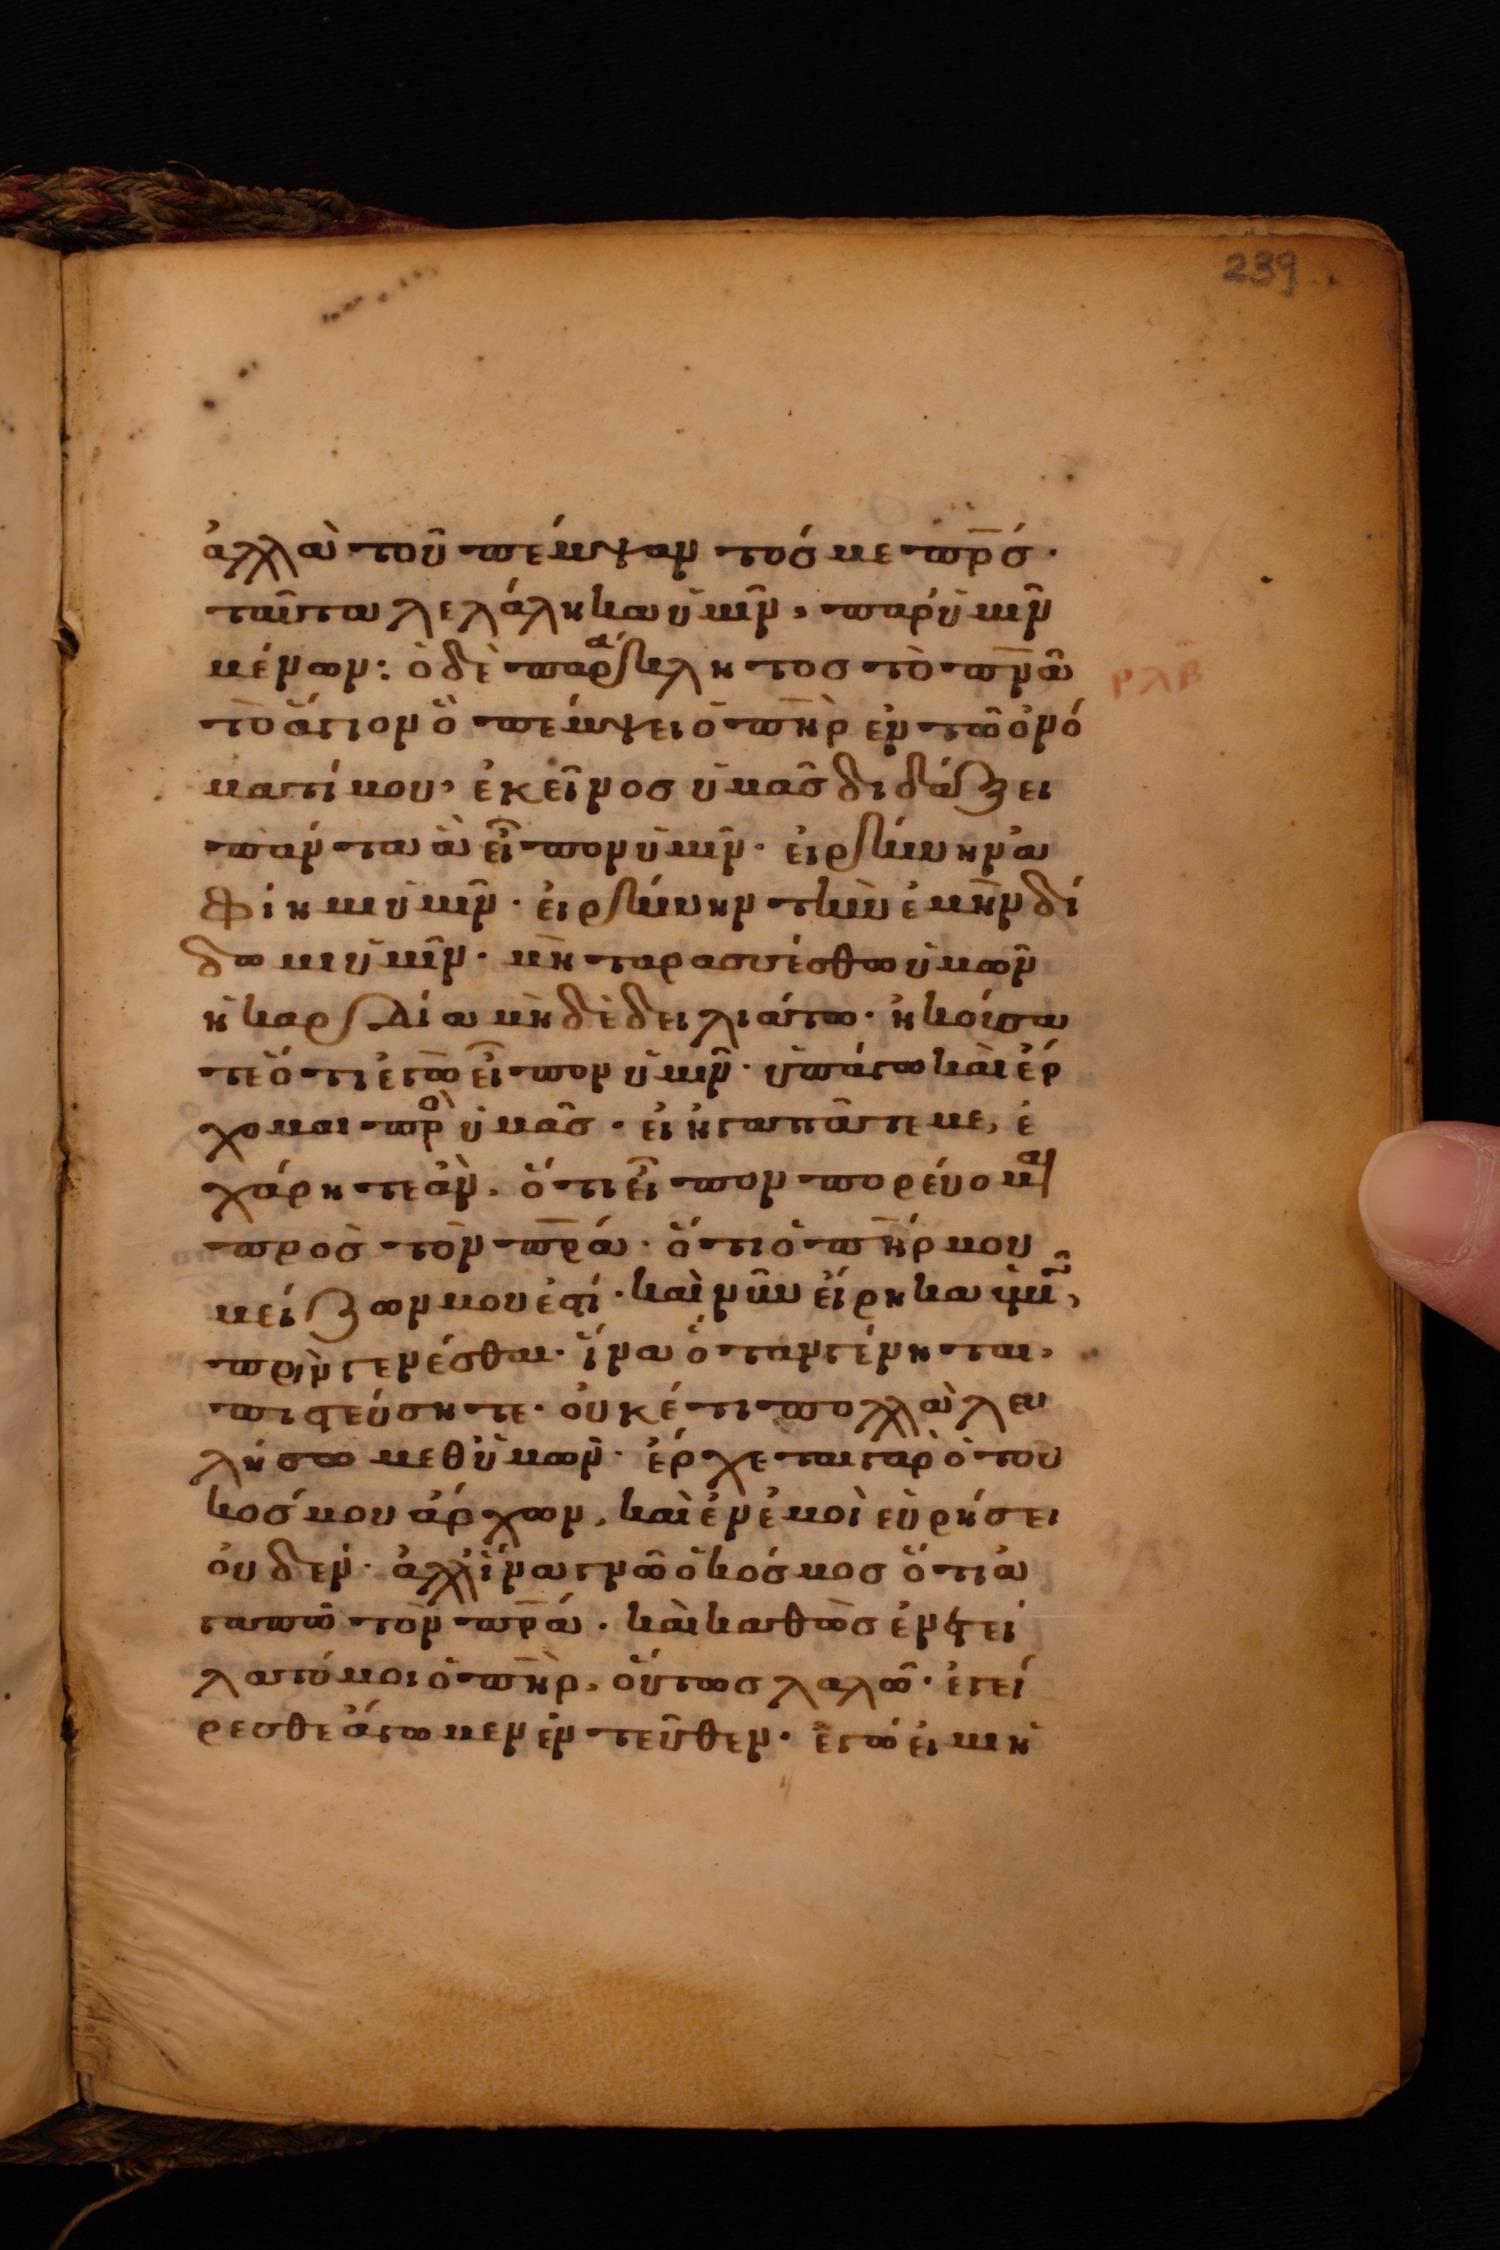 239
ἀλλὰ τοῦ πέμψαντόσ με πρ̅σ́·
ταῦτα λελάληκα ὑμῖν, παρ' ὑμῖν
μένων: ὁ δὲ παράκλητοσ τὸ πν̅α̂
τὸ ἅγιον ὃ πέμψει ὁ π̅ηρ̀ ἐν τῶ ὀνό
ματί μου, ἐκεῖνοσ ὑμᾶσ διδάξει
πάντα ἃ εἶπον ὑμῖν· εἰρήνην ἀ
φίημι ὑμῖν· εἰρήνην τὴν ἐμὴν δί
δωμι ὑμῖν· μὴ ταρασσέσθω ὑμῶν
ἡ καρδία μὴ δὲ δειλιάτω· ἠκούσα
τε ὅτι ἐγὼ εἶπον ὑμῖν· ὑπάγω καὶ ἔρ
χομαι πρὸ ὑμᾶσ· εἰ ἠγαπᾶτε με, ἐ
χάρητε ἂν, ὅτι εἶπον πορεύομαι
προσ τὸν πρ̅ά· ὅτι ὁ π̅ήρ μου
μείζων μου ἐστί· καὶ νῦν εἴρηκα ὑμῖ̂,
πρὶν γενέσθαι· ἵνα ὅταν γένηται,
πιστεύσητε· οὐκέτι πολλὰ λα
λήσω μεθ' ὑμῶν· ἔρχεται γὰρ ὁ τοῦ
κόσμου ἄρχων, καὶ ἐν ἐμοὶ εὑρήσει
οὐδέν· ἀλλ' ἵνα γνῶ ὁ κόσμοσ ὅτι ἀ
γαπῶ τὸν πρ̅ά· καὶ καθὼσ ἐνετεί
λατό μοι ὁ π̅ηρ̀, οὕτωσ λαλῶ· ἐγεί
ρεσθε ἄγωμεν ἐντεῦθεν· ἐγώ εἰμι ἡ
ρλβ